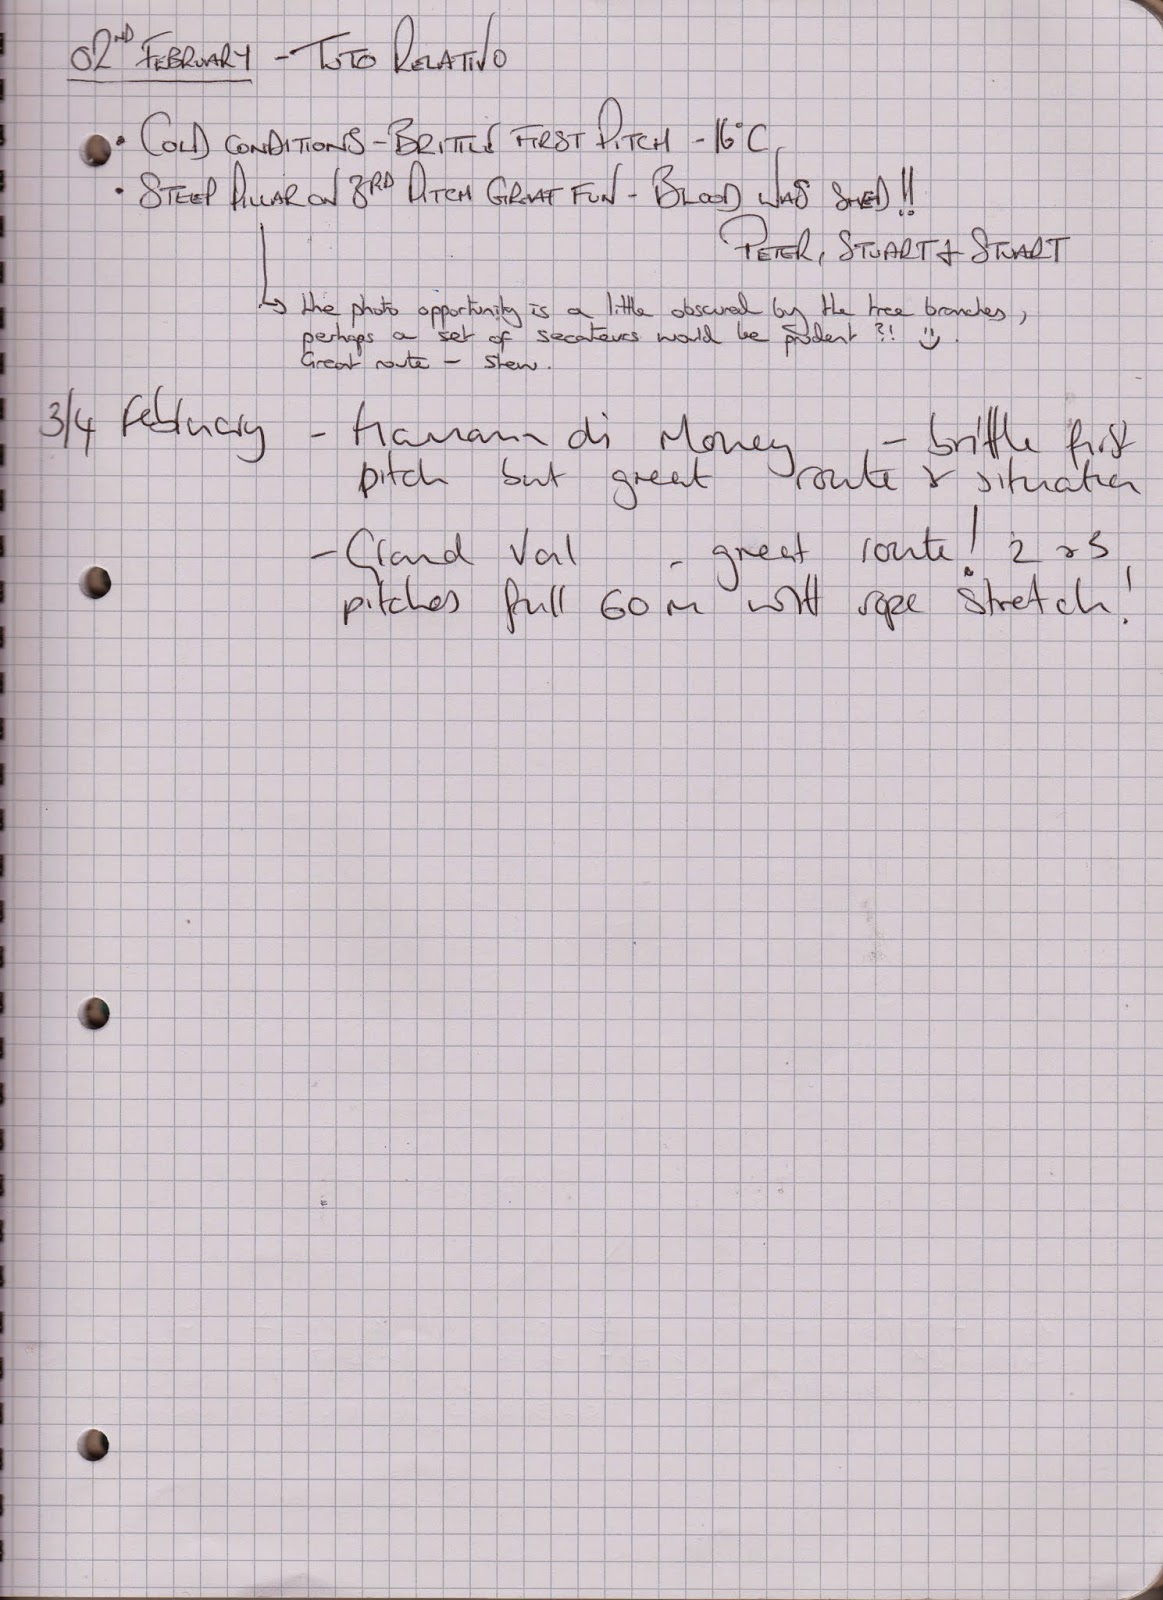 02ND FEBRUARY - TUTO RELATIVO
• COLD CONDITIONS - BRITTLE FIRST PITCH - 16°C
• STEEP PILLAR ON 3RD PITCH GREAT FUN - BLOOD WAS SHED!!
PETER, STUART & STUART
↳ the photo opportunity is a little obscured by the tree branches,
perhaps a set of secateurs would be prudent ?! ☺.
Great route - Stew.
3/4 February - di Money - brittle first
pitch but great route & situation
- Grand Val - great route! 2 & 3
pitches full 60m with rope stretch!